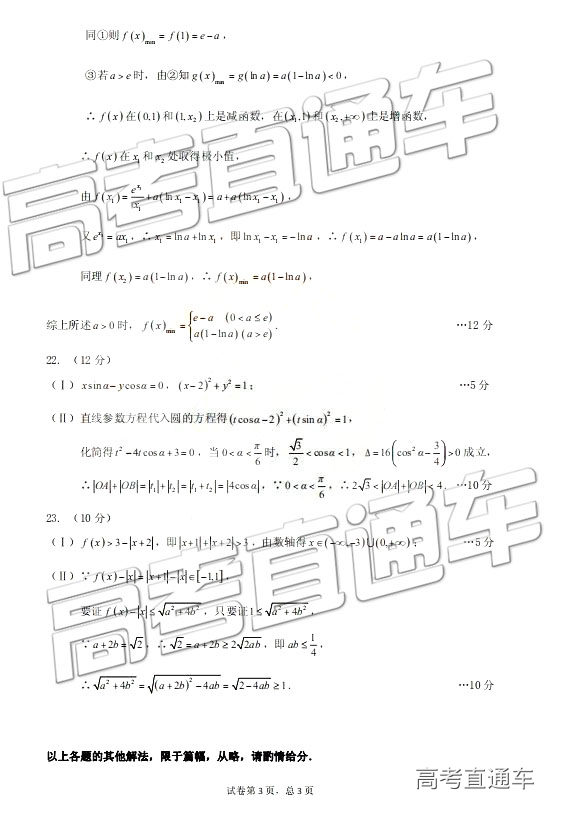 同①则 f(x)min = f(1) = e − a，
③若 a > e 时，由②知 g(x)min = g(ln a) = a(1 − ln a) < 0，
∴ f(x) 在 (0,1) 和 (1, x₂) 上是减函数，在 (x₁,1) 和 (x₂,+∞) 上是增函数，
∴ f(x) 在 x₁ 和 x₂ 处取得极小值，
由 f(x₁) = e^x₁/x₁ + a(ln x₁ − x₁) = a + a(ln x₁ − x₁)，
又 e^x₁ = ax₁，∴ x₁ = ln a + ln x₁，即 ln x₁ − x₁ = −ln a，∴ f(x₁) = a − a ln a = a(1 − ln a)，
同理 f(x₂) = a(1 − ln a)，∴ f(x)min = a(1 − ln a)，
综上所述 a > 0 时，f(x)min = { e − a (0 < a ≤ e) a(1 − ln a) (a > e) . …12 分
22. （12 分）
(Ⅰ) x sin α − y cos α = 0，(x − 2)² + y² = 1； …5 分
(Ⅱ) 直线参数方程代入圆的方程得 (t cos α − 2)² + (t sin α)² = 1，
化简得 t² − 4t cos α + 3 = 0，当 0 < α < π/6 时，√3/2 < cos α < 1，Δ = 16(cos² α − 3/4) > 0 成立，
∴ |OA| + |OB| = |t₁| + |t₂| = |t₁ + t₂| = |4cos α|，∵ 0 < α < π/6，∴ 2√3 < |OA| + |OB| < 4. …10 分
23. （10 分）
(Ⅰ) f(x) > 3 − |x + 2|，即 |x + 1| + |x + 2| > 3，由数轴得 x ∈ (−∞, −3) ∪ (0, +∞)； …5 分
(Ⅱ) ∵ f(x) − |x| = |x + 1| − |x| ∈ [−1,1]，
要证 f(x) − |x| ≤ √(a² + 4b²)，只要证 1 ≤ √(a² + 4b²)，
∵ a + 2b = √2，∴ √2 = a + 2b ≥ 2√(2ab)，即 ab ≤ 1/4，
∴ √(a² + 4b²) = √((a + 2b)² − 4ab) = √(2 − 4ab) ≥ 1. …10 分
以上各题的其他解法，限于篇幅，从略，请酌情给分．
高考直通车
试卷第 3 页，总 3 页
高考直通车
高考直通车